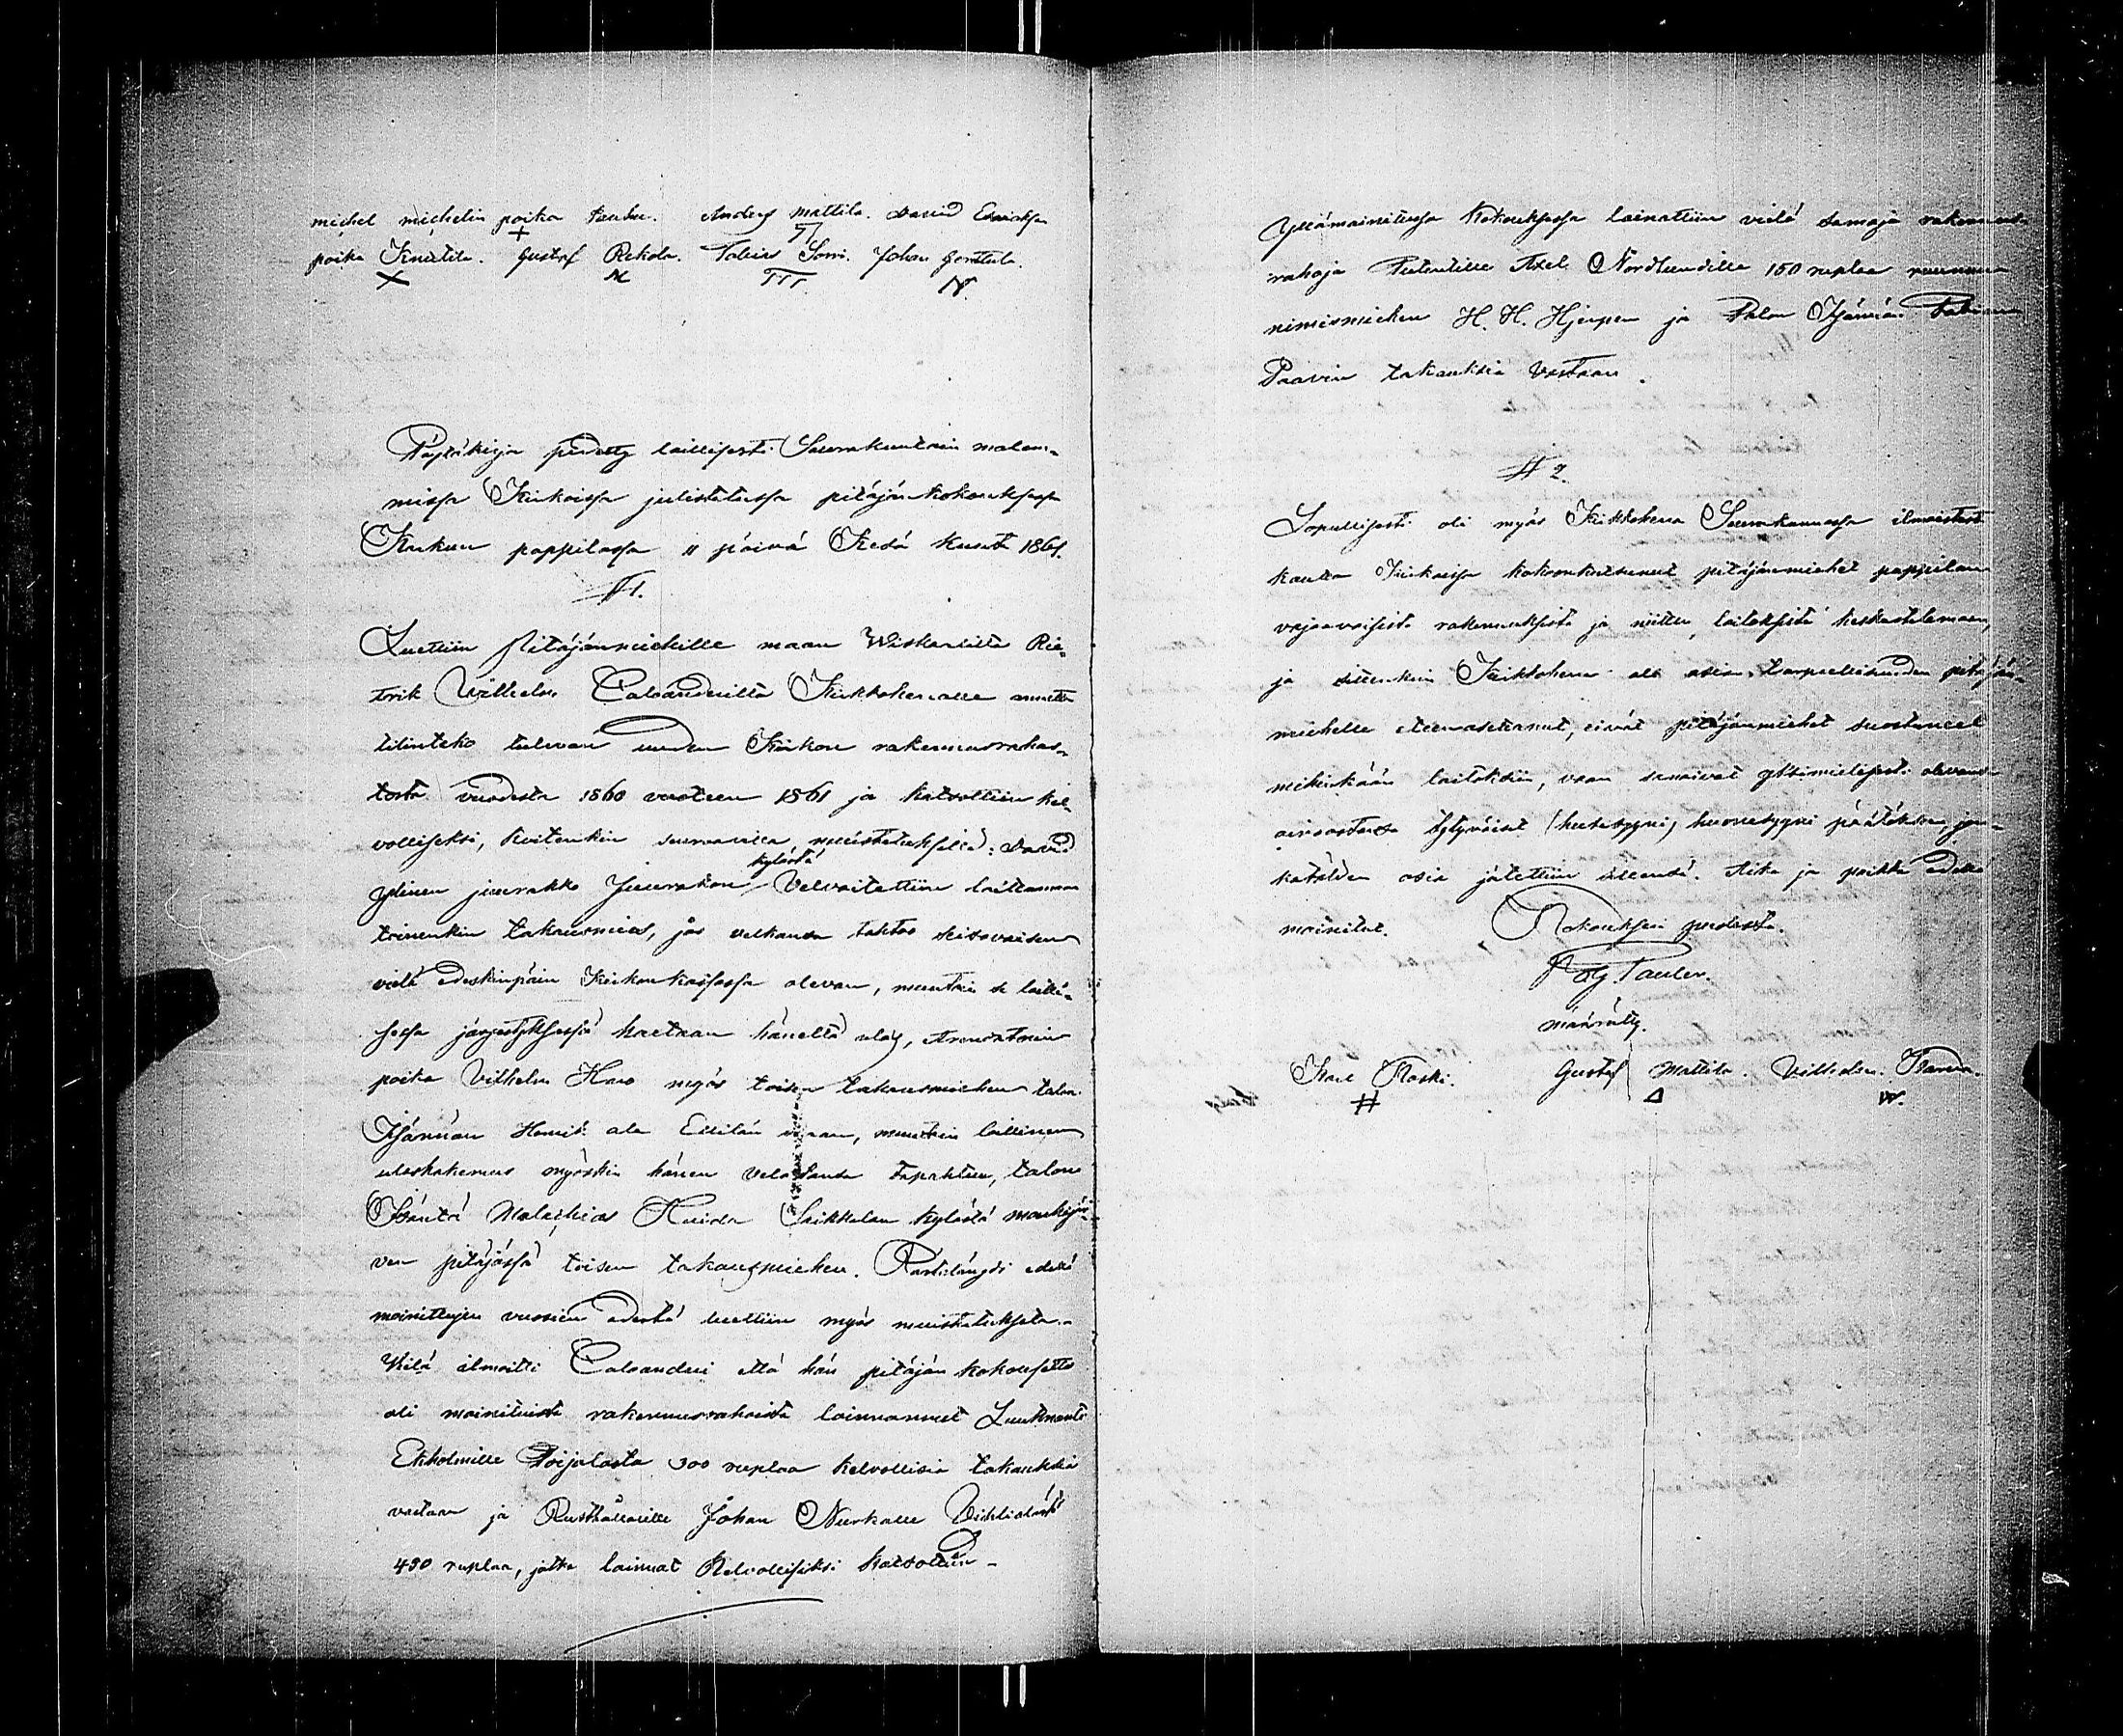 michel michelin poika Anders Mattila. David Erikspr
poika Knuttila. Gustaf Rekola. Tobias Sorri. Johan
Pöytäkirja pidetty laillisesti Seurakuntain molem-
missa Kirkoissa julistetussa pitäjänkokouksessa
Karkun pappilassa 11 päivä Kesä kuuta 1861.
§ 1.
Luettiin Pitäjänmiehille maan Wiskaalilta Rie-
trik Wilhelm Caloanderilta Kirkkoherralle annettu
tilinteko tulevan uuden Kirkon rakennusrahas-
tosta vuodesta 1860 vuoteen 1861 ja katsottiin kel-
volliseksi, kuitenkin seuraavilla muistutuksilla: David
Ylinen juurakko Juurakon kylästä Velvoitettiin laittamaan
toinenkin takausmies, jos velkansa tahtoo seisovaisen
vielä edeskinpäin Kirkonkassassa olevan, muutoin se lailli-
sessa järjestyksessä haetaan häneltä ulos,
poika Vilhelm Haro myös toisen takausmiehen talon
Isännän Henrik ala Eulilän muutoin laillinen
uloshakemus myöskin hänen velastansa tapahtuu, talon
Isäntä Malachias Knida Saikkalan kylästä mouhijär-
ven pitäjässä toisen takausmiehen. Rästilängdi edellä
mainittujen vuosien edestä luettiin myös muistutuksetta.
Vielä ilmoitti Caloanderi että hän pitäjän kokouksetta
oli mainituista rakennusrahoista lainannut Luutnantti
Ekholmille Toijalasta 300 ruplaa kelvollisia takauksia
vastaan ja Rusthållarille Johan Nurkalle
490 ruplaa, jotka lainat Kelvolliseksi katsottiin.
Yllämainitussa Kokouksessa lainattiin vielä samoja rakennus-
rahoja Axel Nordlundille 150 ruplaa ruununn
nimismiehen H. H. Hjerpen ja Talon Isännän Fabian
Paavin takauksia Vastaan.
§ 2.
Lopullisesti oli myös Kirkkoherra Seurakunnassa ilmoitust
kautta Kirkoissa kokoonkutsunut pitäjänmiehet pappilan
vajaavaisista rakennuksista ja niitten laitoksista keskustelemaan,
ja sittenkuin Kirkkoherra oli asian tarpeellisuuden pitäjän-
miehille eteenasettanut, eivät pitäjänmiehet suostuneet
mihinkään laitoksiin, vaan sanoivat yksimielisesti olevansa
ainoastansa tytyväiset huonesyyni päätöksen, jon-
katähden asia jätettiin sillensä. Aika ja paikka edellä
mainitut. Kokouksen puolesta.
määrätty.
Karl Koski. Gustaf Mattila. Vilhelm